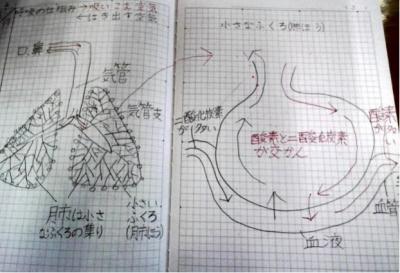 呼吸の仕組み→吸いこむ空気
←はき出す空気
口鼻
気管
気管支
肺は小さ
なふくろの集り
小さい
ふくろ
(肺ほう)
小さなふくろ(肺ほう)
二酸化炭素
が多い
酸素
が多い
酸素と二酸化炭素
が交かん
血管
血液